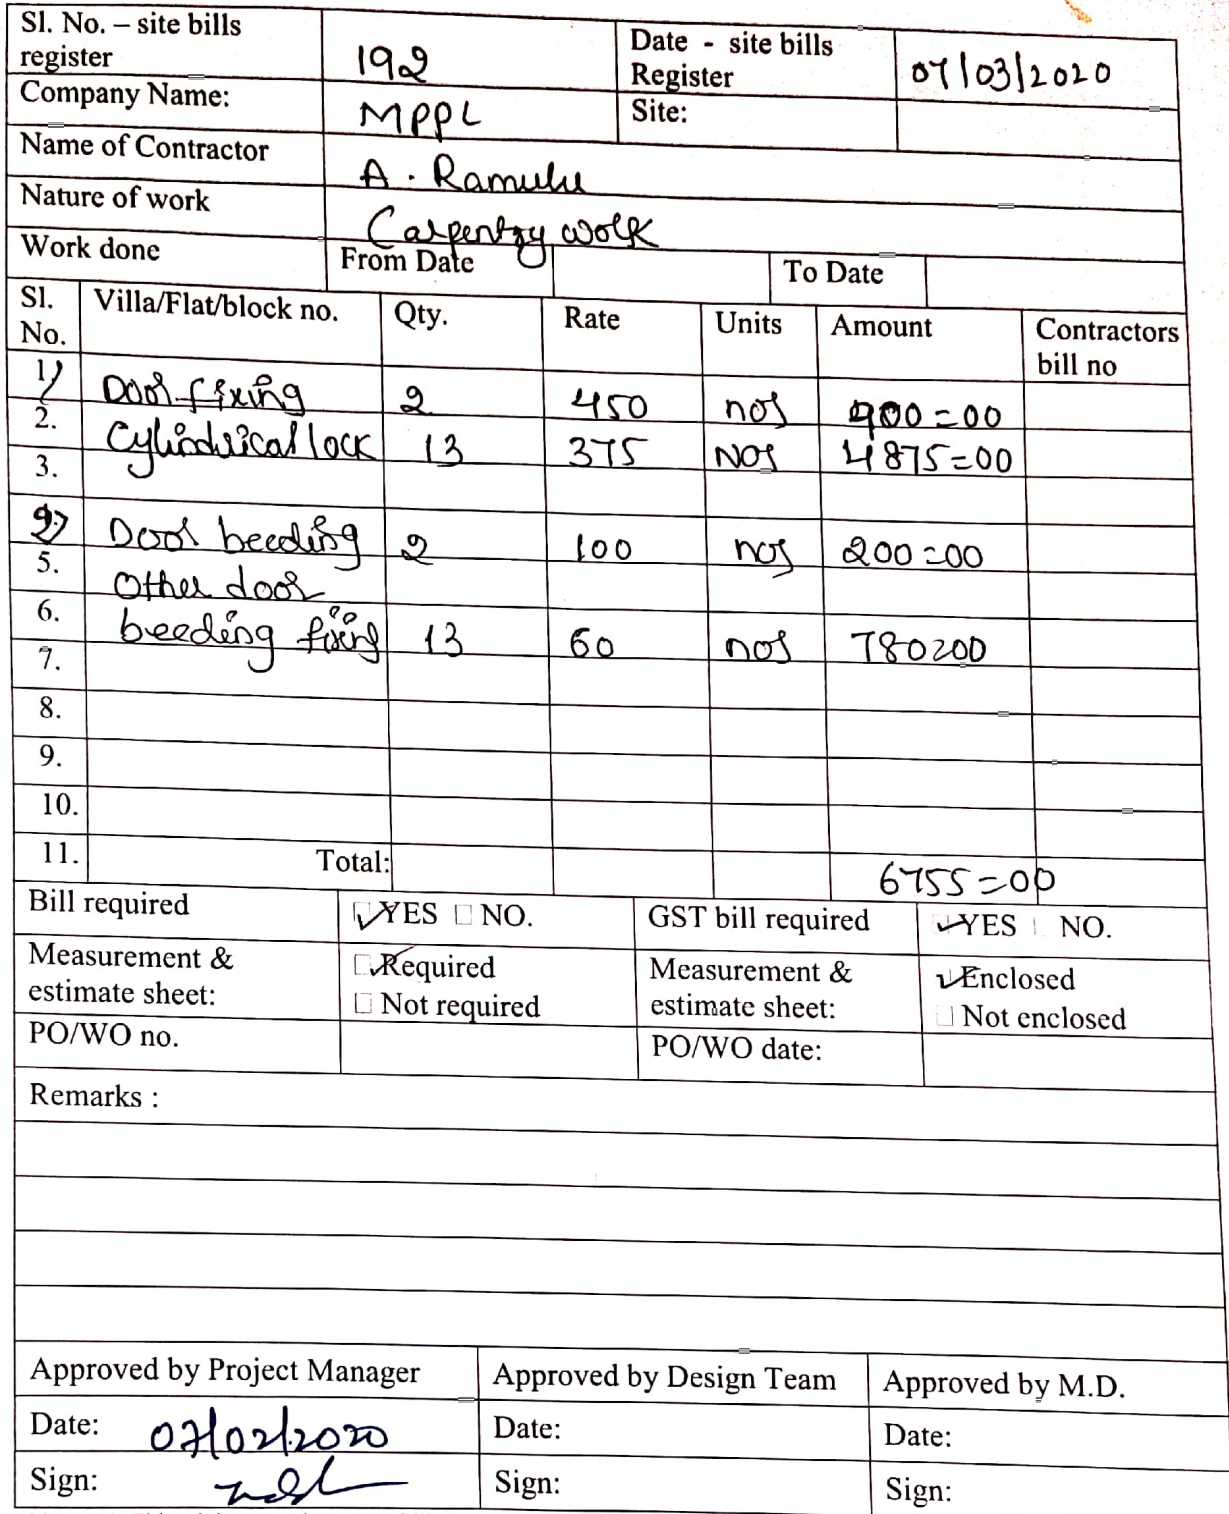 Sl. No. – site bills register 192 Date - site bills Register 07/03/2020
Company Name: MPPL Site:
Name of Contractor A. Ramulu
Nature of work Carpentry work
Work done From Date To Date
Sl. No. Villa/Flat/block no. Qty. Rate Units Amount Contractors bill no
1) Door fixing 2 450 nos 900=00
2. Cylindrical lock 13 375 Nos 4875=00
3.
Door beeding 2 100 nos 200=00
5. Other door
6. beeding fixing 13 60 nos 780=00
7.
8.
9.
10.
11. Total: 6755=00
Bill required YES NO. GST bill required YES NO.
Measurement & estimate sheet: Required Measurement & estimate sheet: Enclosed
Not required Not enclosed
PO/WO no. PO/WO date:
Remarks :
Approved by Project Manager Approved by Design Team Approved by M.D.
Date: 07/02/2020 Date: Date:
Sign: Sign: Sign: